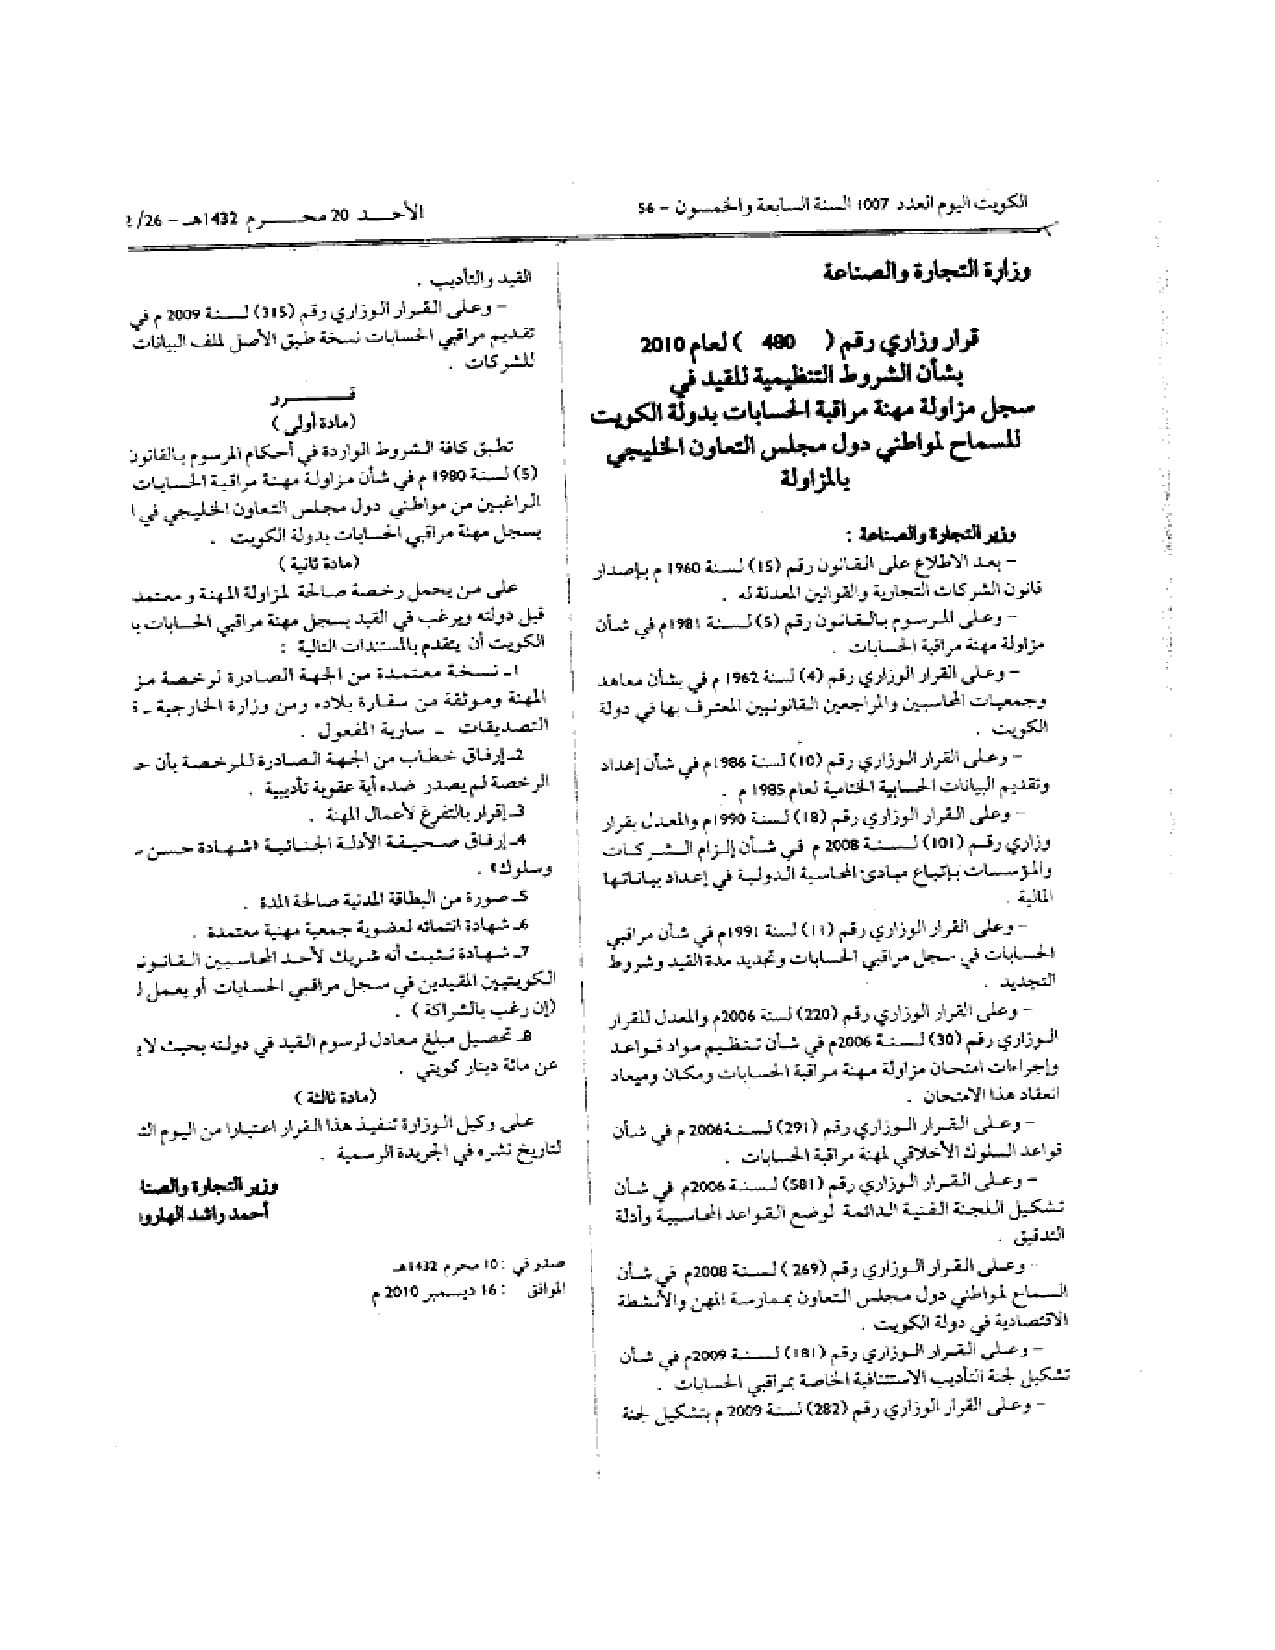 الكويت اليوم العدد 1007 السنة السابعة والخمسون - 56
الأحد 20 محرم 1432هـ - 26/
وزارة التجارة والصناعة
قرار وزاري رقم ( 480 ) لعام 2010
بشأن الشروط التنظيمية للقيد في
سجل مزاولة مهنة مراقبة الحسابات بدولة الكويت
للسماح لمواطني دول مجلس التعاون الخليجي
بالمزاولة
وزير التجارة والصناعة :
- بعد الاطلاع على القانون رقم (15) لسنة 1960 م بإصدار
قانون الشركات التجارية والقوانين المعدلة له .
- وعلى المرسوم بالقانون رقم (5) لسنة 1981م في شأن
مزاولة مهنة مراقبة الحسابات .
- وعلى القرار الوزاري رقم (4) لسنة 1962 م في بشأن معاهد
وجمعيات المحاسبين والمراجعين القانونيين المعترف بها في دولة
الكويت .
- وعلى القرار الوزاري رقم (10) لسنة 1986م في شأن إعداد
وتقديم البيانات الحسابية الختامية لعام 1985 م .
- وعلى القرار الوزاري رقم (18) لسنة 1990م والمعدل بقرار
وزاري رقم (101) لسنة 2008 م في شأن إلزام الشركات
والمؤسسات بإتباع مبادئ المحاسبة الدولية في إعداد بياناتها
المالية .
- وعلى القرار الوزاري رقم (11) لسنة 1991م في شأن مراقبي
الحسابات في سجل مراقبي الحسابات وتحديد مدة القيد وشروط
التجديد .
- وعلى القرار الوزاري رقم (220) لسنة 2006م والمعدل للقرار
الوزاري رقم (30) لسنة 2006م في شأن تنظيم مواد قواعد
وإجراءات امتحان مزاولة مهنة مراقبة الحسابات ومكان وميعاد
انعقاد هذا الامتحان .
- وعلى القرار الوزاري رقم (291) لسنة 2006م في شأن
قواعد السلوك الأخلاقي لمهنة مراقبة الحسابات .
- وعلى القرار الوزاري رقم (581) لسنة 2006م في شأن
تشكيل اللجنة الفنية الدائمة لوضع القواعد المحاسبية وأدلة
التدقيق .
- وعلى القرار الوزاري رقم (269) لسنة 2008م في شأن
السماح لمواطني دول مجلس التعاون بممارسة المهن والأنشطة
الاقتصادية في دولة الكويت .
- وعلى القرار الوزاري رقم (181) لسنة 2009م في شأن
تشكيل لجنة التأديب الاستئنافية الخاصة بمراقبي الحسابات .
- وعلى القرار الوزاري رقم (282) لسنة 2009 م بتشكيل لجنة
القيد والتأديب .
- وعلى القرار الوزاري رقم (315) لسنة 2009 م في
تقديم مراقبي الحسابات نسخة طبق الأصل لملف البيانات
للشركات .
قـــرر
(مادة أولى)
تطبق كافة الشروط الواردة في أحكام المرسوم بالقانون
(5) لسنة 1980 م في شأن مزاولة مهنة مراقبة الحسابات
الراغبين من مواطني دول مجلس التعاون الخليجي في ا
بسجل مهنة مراقبي الحسابات بدولة الكويت .
(مادة ثانية)
على من يحمل رخصة صالحة لمزاولة المهنة ومعتمد
قبل دولته ويرغب في القيد بسجل مهنة مراقبي الحسابات بـ
الكويت أن يتقدم بالمستندات التالية :
1ـ نسخة معتمدة من الجهة الصادرة لرخصة مز
المهنة وموثقة من سفارة بلاده ومن وزارة الخارجية ـ ق
التصديقات ـ سارية المفعول .
2ـ إرفاق خطاب من الجهة الصادرة للرخصة بأن حـ
الرخصة لم يصدر ضده أية عقوبة تأديبية .
3ـ إقرار بالتفرغ لأعمال المهنة .
4ـ إرفاق صحيفة الأدلة الجنائية «شهادة حسن سـ
وسلوك» .
5ـ صورة من البطاقة المدنية صالحة المدة .
6ـ شهادة انتمائه لعضوية جمعية مهنية معتمدة .
7ـ شهادة تثبت أنه شريك لأحد المحاسبين القانونـ
الكويتيين المقيدين في سجل مراقبي الحسابات أو يعمل لـ
(إن رغب بالشراكة) .
8ـ تحصيل مبلغ معادل لرسوم القيد في دولته بحيث لا يـ
عن مائة دينار كويتي .
(مادة ثالثة)
على وكيل الوزارة تنفيذ هذا القرار اعتبارا من اليوم التـ
لتاريخ نشره في الجريدة الرسمية .
وزير التجارة والصنا
أحمد راشد الهارو
صدر في : 10 محرم 1432هـ
الموافق : 16 ديسمبر 2010 م